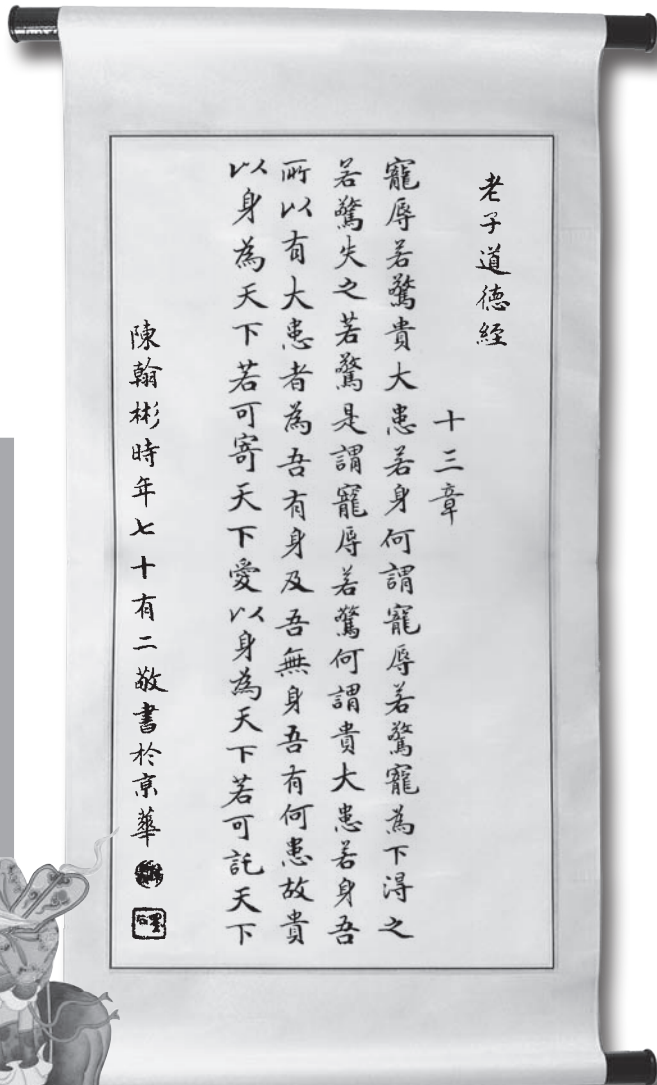 老子道德經
十三章
寵辱若驚貴大患若身何謂寵辱若驚寵為下得之
若驚失之若驚是謂寵辱若驚何謂貴大患若身吾
所以有大患者為吾有身及吾無身吾有何患故貴
以身為天下若可寄天下愛以身為天下若可託天下
陳翰彬時年七十有二敬書於京華